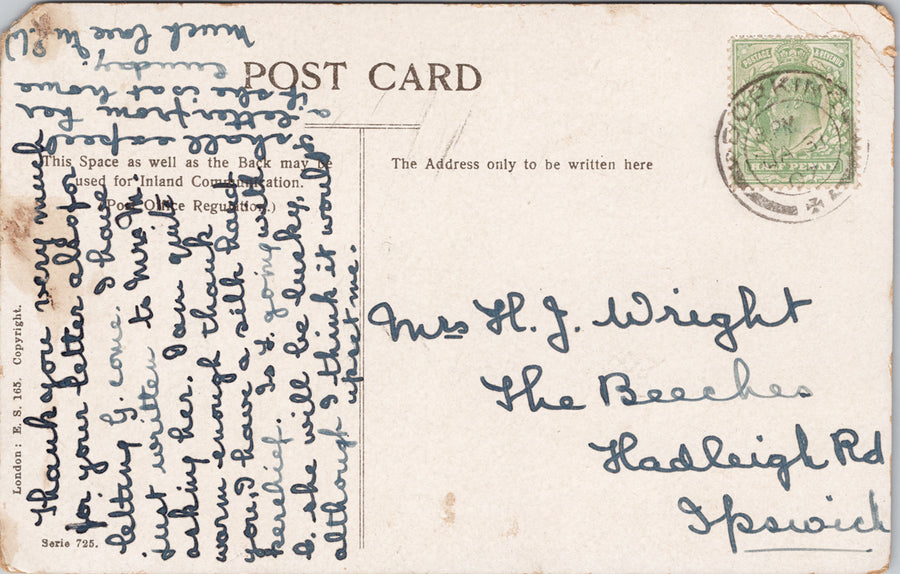 POST CARD
This Space as well as the Back may be
used for Inland Communication.
(Post Office Regulation.)
The Address only to be written here
London: E. S. 165. Copyright.
Serie 725.
POSTAGE & REVENUE
DORKING
Mrs H. J. Wright
The Beeches
Hadleigh Rd
Ipswich
Thank you very much
for your letter also for
letting G. come. I have
just written to Mrs M.
asking her. I am quite
warm enough thank
you, I have a silk hand
kerchief. Is L. going with
G. she will be lucky,
although I think it would
upset me.
I shall expect
a letter from her
if she is at home
Sunday
Much love M. P. W